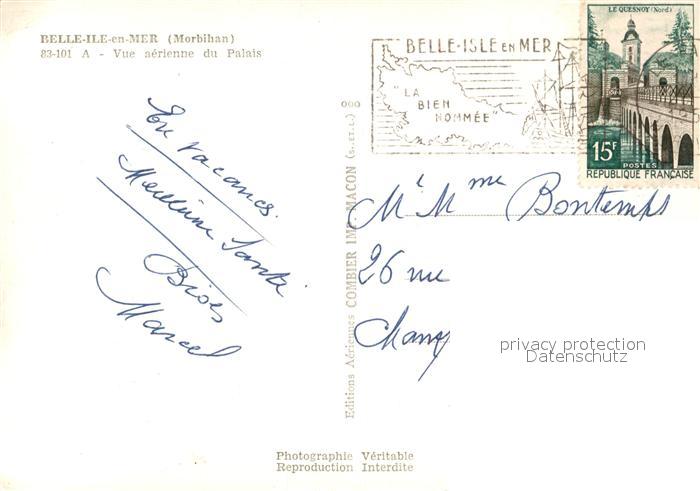 BELLE-ILE-en-MER (Morbihan)
83-101 A - Vue aérienne du Palais
En vacances.
Meilleure Santé
Bises
Marcel
Editions Aériennes COMBIER IMP. MACON (S.-ET-L.)
BELLE-ISLE EN MER
"LA
BIEN
NOMMÉE"
LE QUESNOY (Nord)
15F
POSTES
REPUBLIQUE FRANÇAISE
M et Mme Bontemps
26 rue
privacy protection
Datenschutz
Photographie Véritable
Reproduction Interdite